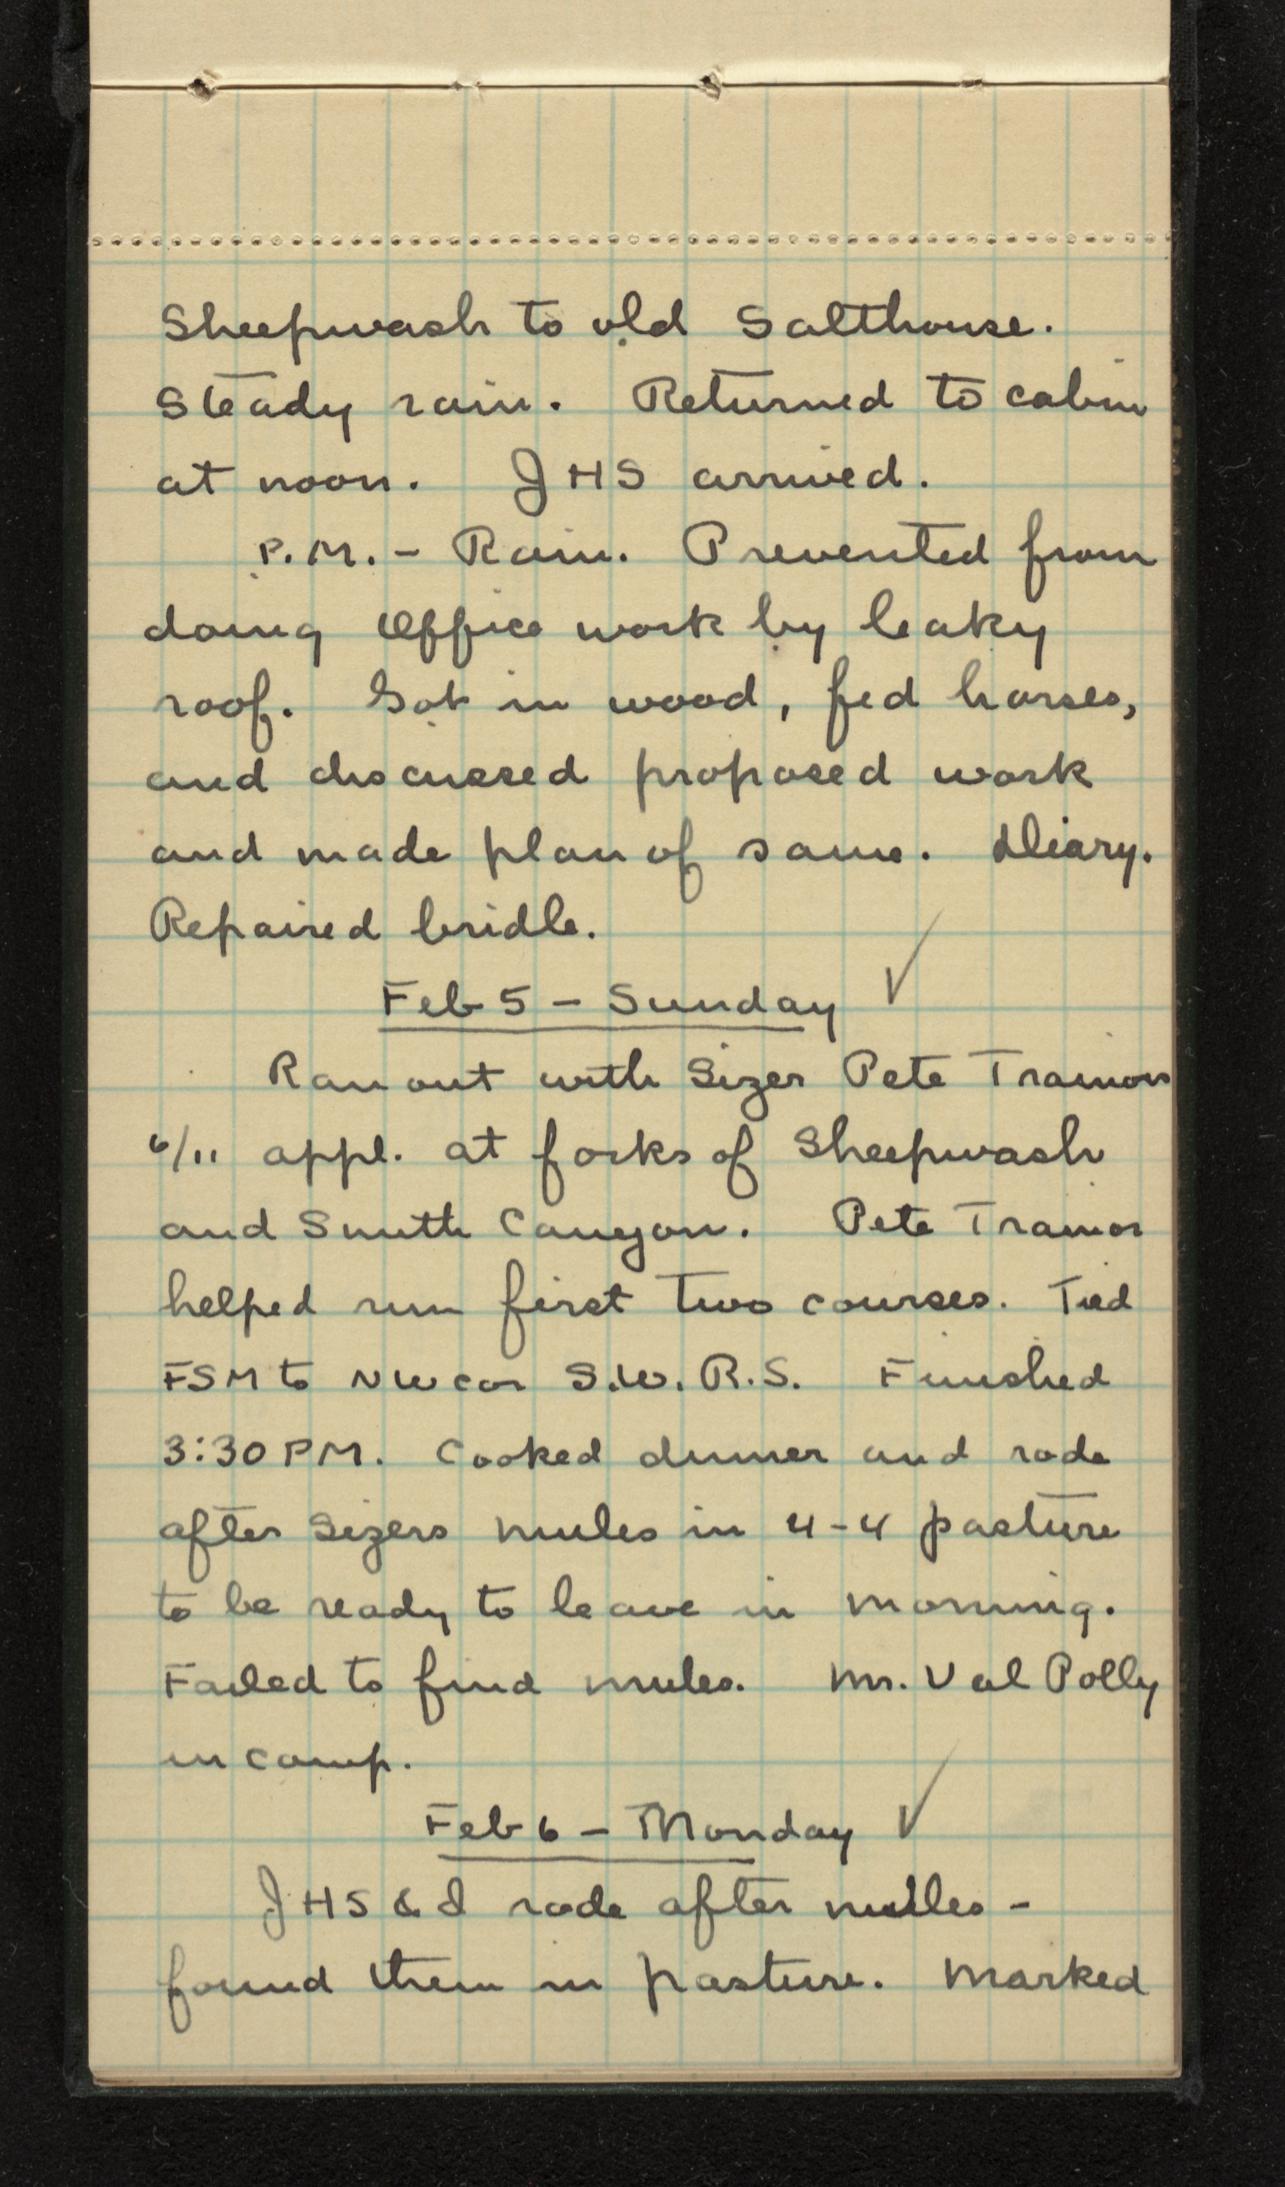 Sheepwash to old Salthouse.
Steady rain. Returned to cabin
at noon. JHS arrived.
P.M. - Rain. Prevented from
doing office work by leaky
roof. Got in wood, fed horses,
and discussed proposed work
and made plan of same. Diary.
Repaired bridle.
Feb 5 - Sunday ✓
Ran out with Sizer Pete Trainors
6/11 appl. at forks of Sheepwash
and Smith Canyon. Pete Trainor
helped run first two courses. Tied
FSM to NW cor S.W. R.S. Finished
3:30 PM. Cooked dinner and rode
after Sizers mules in 4-4 pasture
to be ready to leave in morning.
Failed to find mules. Mr. Val Polly
in camp.
Feb 6 - Monday ✓
JHS & I rode after mules -
found them in pasture. Marked